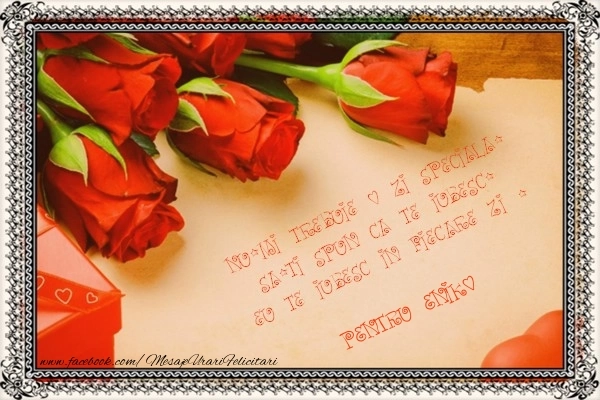 NU*IMI TREBUIE O ZI SPECIALA*
SA*TI SPUN CA TE IUBESC*
EU TE IUBESC IN FIECARE ZI *
PENTRU ENIKO
www.facebook.com/MesajeUrariFelicitari